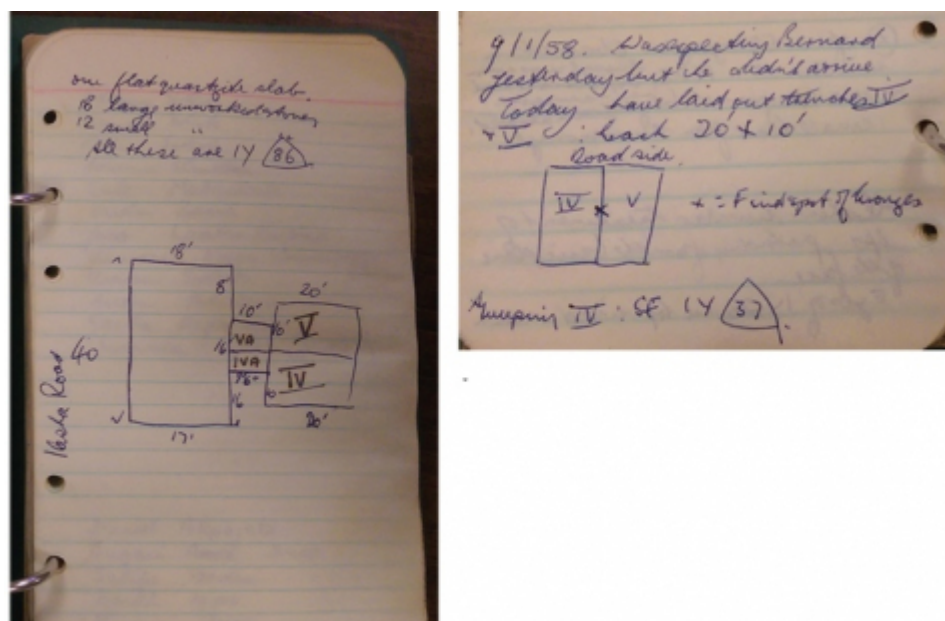 one flat quartzite slab.
18 large unworked stones
12 small "
All these are IY 86
18'
8'
10'
20'
10'
V
VA
16
40
IVA
IV
16
17'
20'
Ilesha Road
9/1/58. Was expecting Bernard
yesterday but he didn't arrive.
Today have laid out trenches IV
+ V : each 20' x 10'
Road side.
IV
V
x = Findspot of bronzes
Sweeping IV : SF IY 37